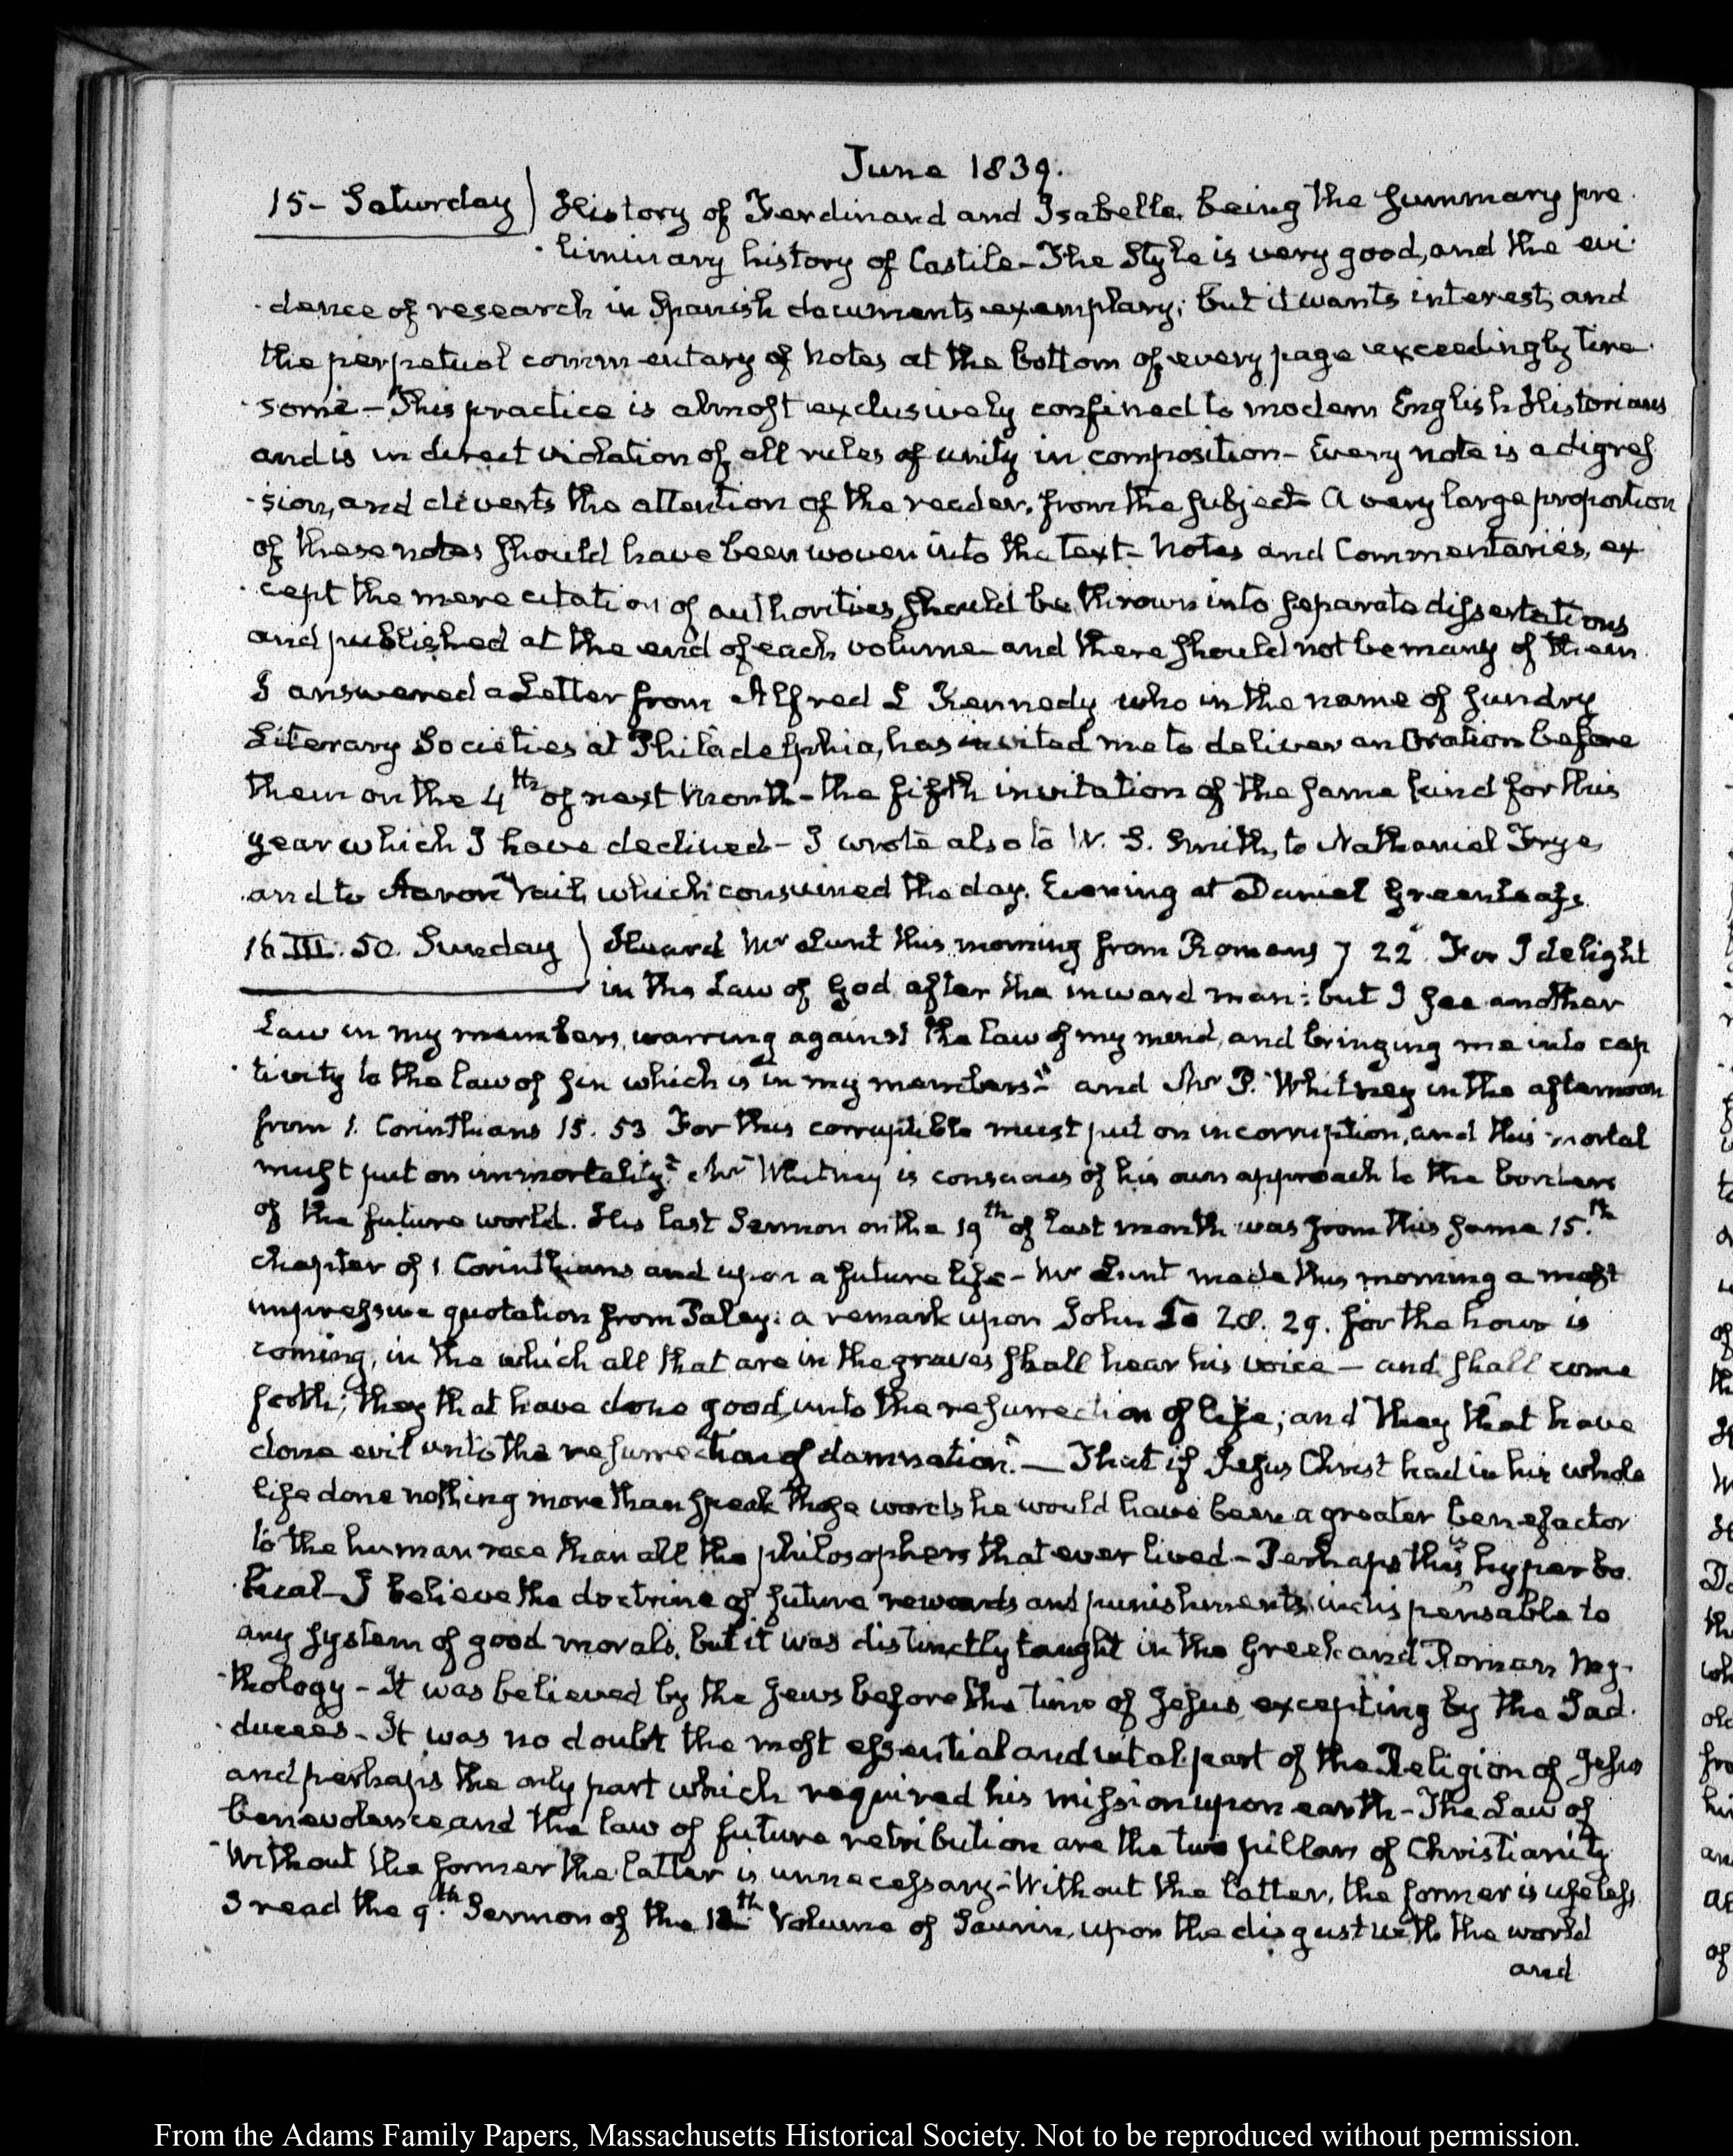 June 1839.
15 - Saturday) History of Ferdinand and Isabella, being the Summary pre
liminary history of Castile - The Style is very good, and the evi
dence of research in Spanish documents exemplary; but it wants interest, and
the perpetual commentary of notes at the bottom of every page exceedingly tire
some - This practice is almost exclusively confined to modern English Historians
and is in direct violation of all rules of unity in composition - Every note is a digres
sion, and diverts the attention of the reader, from the subject A very large proportion
of these notes should have been woven into the text - Notes and Commentaries, ex
cept the mere citation of authorities, should be thrown into separate dissertations
and published at the end of each volume and there should not be many of them.
I answered a Letter from Alfred L Kennedy who in the name of sundry
Literary Societies at Philadelphia, has invited me to deliver an Oration before
them on the 4th of next Month - the fifth invitation of the same kind for this
year which I have declined - I wrote also to W. S. Smith, to Nathaniel Frye,
and to Aaron Vail, which consumed the day. Evening at Daniel Greenleafs.
16 III. 50. Sunday) Heard Mr Lunt this morning from Romans 7 22 For I delight
in the Law of God after the inward man: but I see another
Law in my members, warring against the law of my mind, and bringing me into cap
tivity to the law of sin which is in my members." and Mr P. Whitney in the afternoon
from 1. Corinthians 15. 53 For this corruptible must put on incorruption, and this mortal
must put on immortality." Mr Whitney is conscious of his own approach to the borders
of the future world. His last Sermon on the 19th of last month was from this same 15.th
chapter of 1 Corinthians and upon a future life - Mr Lunt made this morning a most
impressive quotation from Paley: a remark upon John 5 28. 29. for the hour is
coming, in the which all that are in the graves shall hear his voice - and shall come
forth; they that have done good, unto the resurrection of life; and they that have
done evil unto the resurrection of damnation." — That if Jesus Christ had in his whole
life done nothing more than speak those words he would have been a greater benefactor
to the human race than all the philosophers that ever lived - Perhaps this is hyperbo
lical - I believe the doctrine of future rewards and punishments, indispensable to
any system of good morals, but it was distinctly taught in the Greek and Roman My
thology - It was believed by the Jews before the time of Jesus excepting by the Sad
ducees - It was no doubt the most essential and vital part of the Religion of Jesus
and perhaps the only part which required his mission upon earth - The Law of
benevolence, and the law of future retribution are the two pillars of Christianity
Without the former the latter is unnecessary - Without the latter, the former is useless
I read the 9.th Sermon of the 12th Volume of Saurin, upon the disgust with the world
and
From the Adams Family Papers, Massachusetts Historical Society. Not to be reproduced without permission.